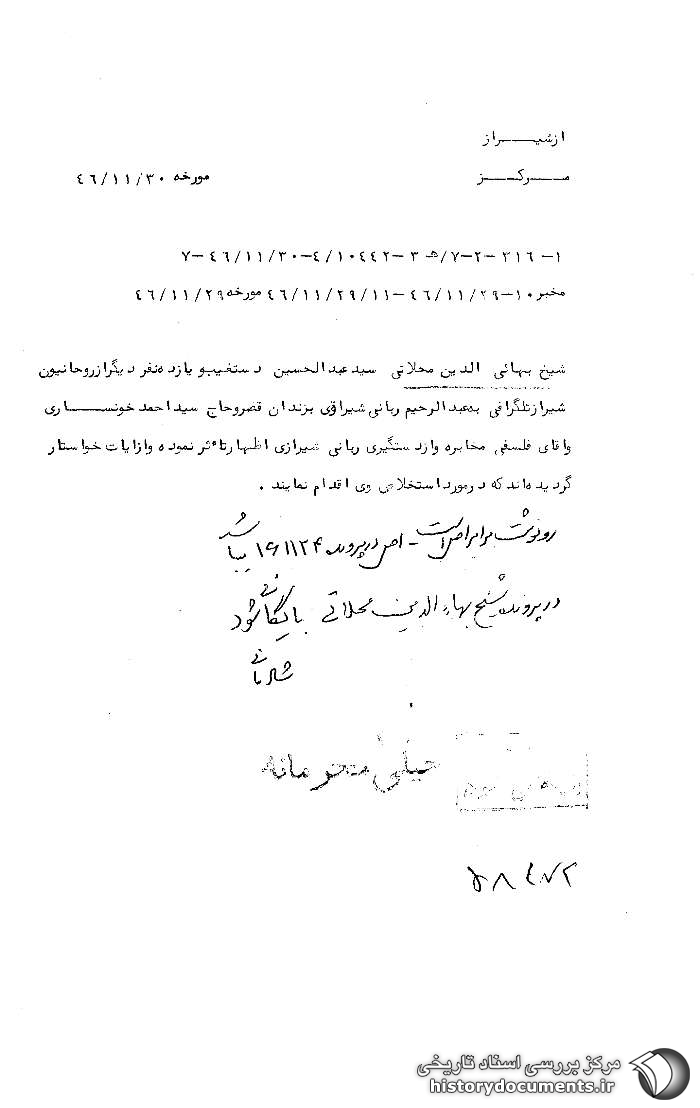 از شیــــراز
مـــرکـــز
مورخه ۴٦/۱۱/۳۰
۱- ۳۱٦-۲-۷/هـ ۳-۴/۱۰۴۴۲-۴٦/۱۱/۳۰-۷
مخبر ۱۰-۴٦/۱۱/۲۹-۴٦/۱۱/۲۹/۱۱ مورخه ۴٦/۱۱/۲۹
شیخ بهائی الدین محلاتی سید عبدالحسین دستغیب و یازده نفر دیگر از روحانیون
شیراز تلگرافی به عبدالرحیم ربانی شیرازی بزندان قصر و حاج سید احمد خونســـاری
و اقای فلسفی مخابره و از دستگیری ربانی شیرازی اظهار تاءثر نموده و از ایات خواستار
گردیده اند که در مورد استخلاص وی اقدام نمایند .
رونوشت برابر اصل است - اصل در پرونده ۱۶۱۱۲۴ میباشد
در پرونده شیخ بهاء الدین محلاتی بایگانی شود
خیلی محرمانه
مرکز بررسی اسناد تاریخی
historydocuments.ir